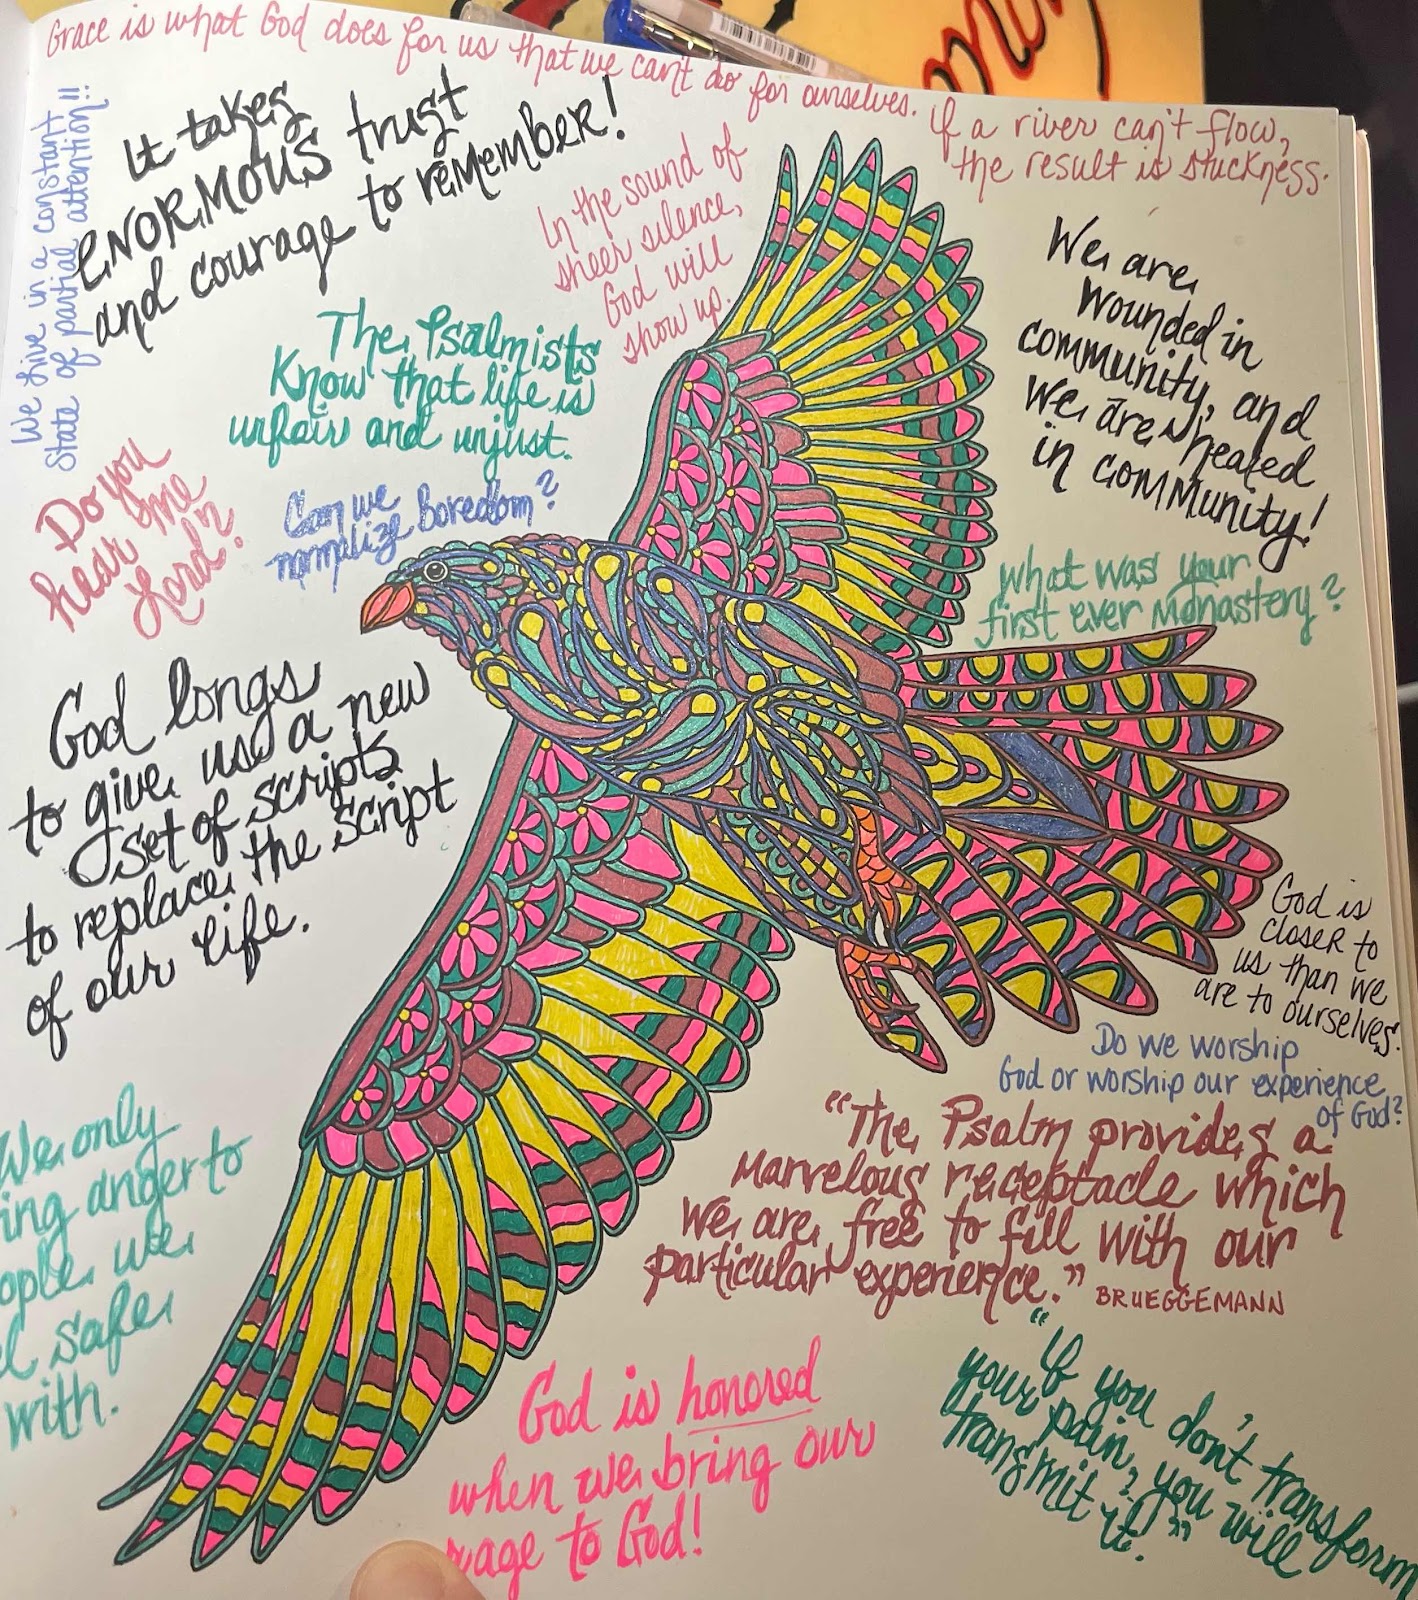 Grace is what God does for us that we can't do for ourselves.
If a river can't flow,
the result is stuckness.
We live in a constant
state of partial attention!!
It takes
ENORMOUS trust
and courage to remember!
In the sound of
sheer silence,
God will
show up.
The Psalmists
Know that life is
unfair and unjust.
We are
wounded in
community, and
we are healed
in community!
Do you
hear me
Lord?
Can we
normalize boredom?
What was your
first ever monastery?
God longs
to give us a new
set of scripts
to replace the script
of our life.
God is
closer to
us than we
are to ourselves.
Do we worship
God or worship our experience
of God?
We only
ing anger to
ople we
l safe
with.
"The Psalm provides a
marvelous receptacle which
we are free to fill with our
particular experience."
BRUEGGEMANN
God is honored
when we bring our
rage to God!
"If you don't transform
your pain, you will
transmit it!"